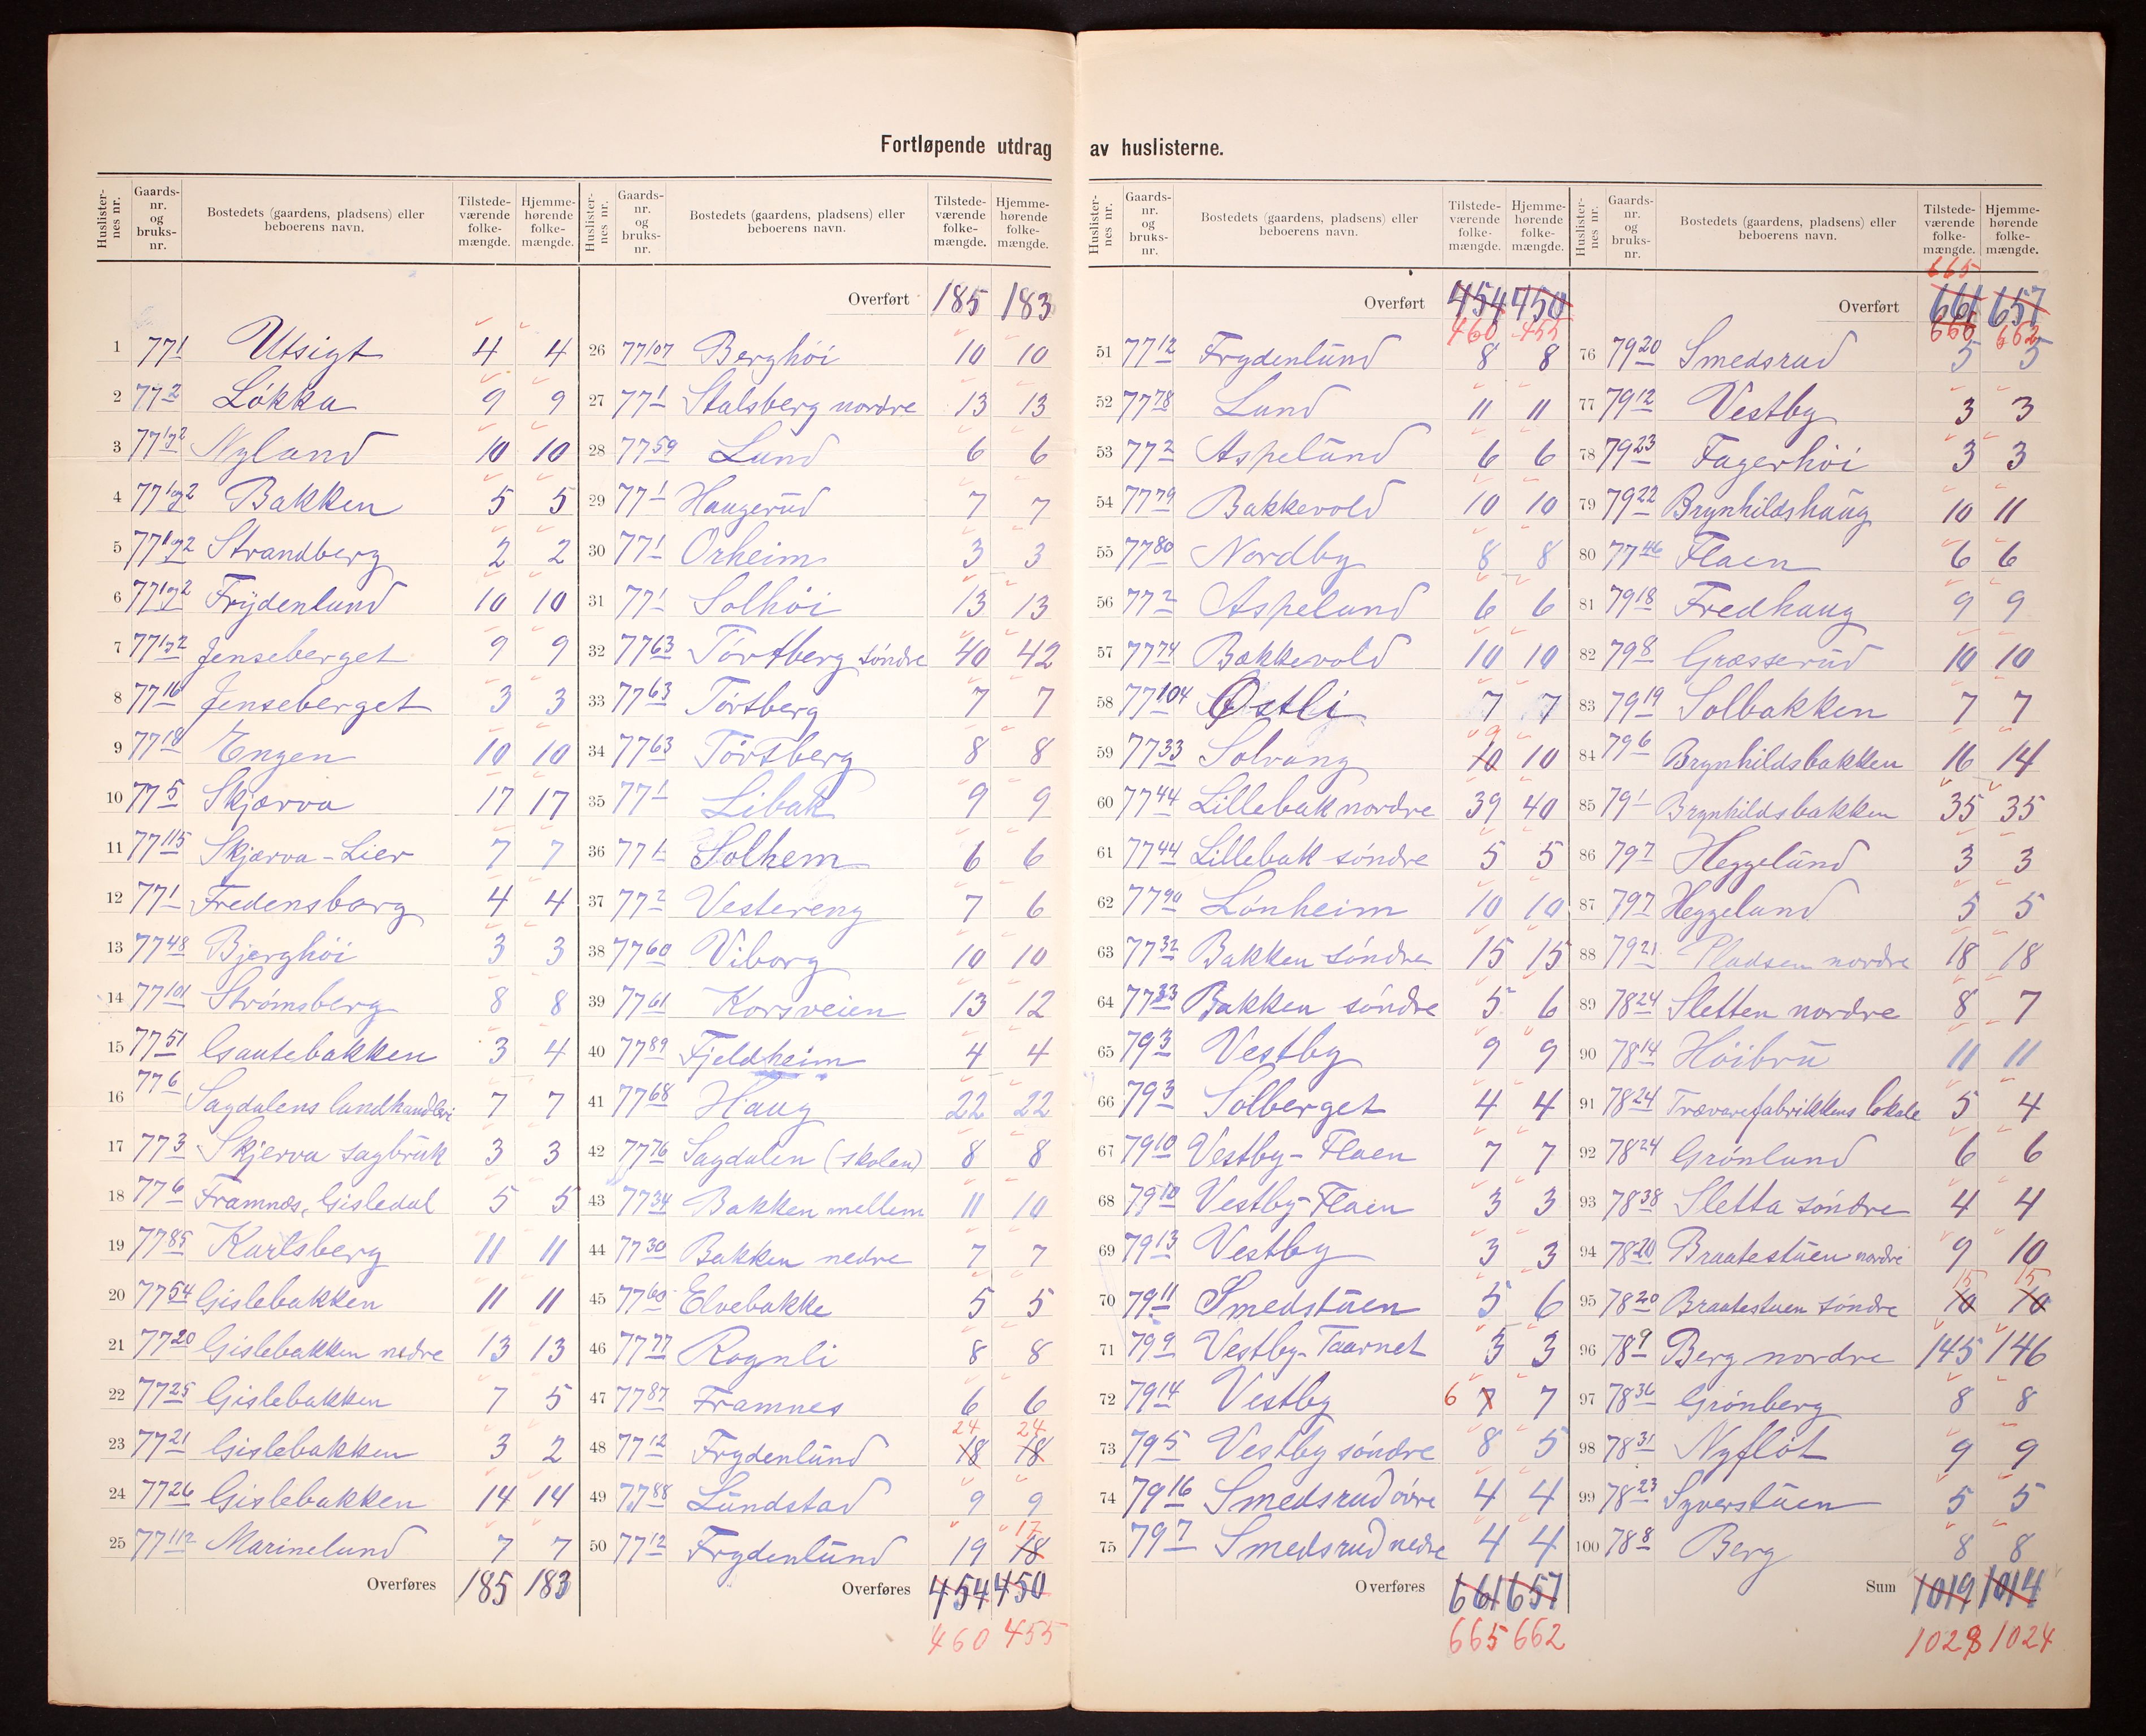 Fortløpende utdrag av huslisterne.
Huslisternes nr. Gaardsnr. og bruksnr. Bostedets (gaardens, pladsens) eller beboerens navn. Tilstedeværende folkemængde. Hjemmehørende folkemængde.
1 77 1 Utsigt 4 4
2 77 2 Løkka 9 9
3 77 1,2 Nyland 10 10
4 77 1,2 Bakken 5 5
5 77 1,2 Strandberg 2 2
6 77 1,2 Frydenlund 10 10
7 77 1,2 Jenseberget 9 9
8 77 16 Jenseberget 3 3
9 77 18 Engen 10 10
10 77 5 Skjærva 17 17
11 77 115 Skjærva-Lier 7 7
12 77 1 Fredensborg 4 4
13 77 48 Bjerghöi 3 3
14 77 101 Strömsberg 8 8
15 77 51 Gautebakken 3 4
16 77 6 Sagdalens landhandleri 7 7
17 77 3 Skjerva sagbruk 3 3
18 77 6 Framnæs, Gisledal 5 5
19 77 85 Karlsberg 11 11
20 77 54 Gislebakken 11 11
21 77 20 Gislebakken nedre 13 13
22 77 25 Gislebakken 7 5
23 77 21 Gislebakken 3 2
24 77 26 Gislebakken 14 14
25 77 112 Marinelund 7 7
Overføres 185 183
Huslisternes nr. Gaardsnr. og bruksnr. Bostedets (gaardens, pladsens) eller beboerens navn. Tilstedeværende folkemængde. Hjemmehørende folkemængde.
Overført 185 183
26 77 107 Berghöi 10 10
27 77 1 Stalsberg nordre 13 13
28 77 59 Lund 6 6
29 77 1 Haugerud 7 7
30 77 1 Orheim 3 3
31 77 1 Solhöi 13 13
32 77 63 Törtberg söndre 40 42
33 77 63 Törtberg 7 7
34 77 63 Törtberg 8 8
35 77 1 Libak 9 9
36 77 1 Solhem 6 6
37 77 2 Vestereng 7 6
38 77 60 Viborg 10 10
39 77 61 Korsveien 13 12
40 77 89 Fjeldheim 4 4
41 77 68 Haug 22 22
42 77 76 Sagdalen (skolen) 8 8
43 77 34 Bakken mellem 11 10
44 77 30 Bakken nedre 7 7
45 77 60 Elvebakke 5 5
46 77 77 Rognli 8 8
47 77 87 Framnes 6 6
24 24
48 77 12 Frydenlund 18 18
49 77 88 Lundstad 9 9
17
50 77 12 Frydenlund 19 18
Overføres 454 450
460 455
Huslisternes nr. Gaardsnr. og bruksnr. Bostedets (gaardens, pladsens) eller beboerens navn. Tilstedeværende folkemængde. Hjemmehørende folkemængde.
Overført 454 450
460 455
51 77 12 Frydenlund 8 8
52 77 78 Lund 11 11
53 77 2 Aspelund 6 6
54 77 79 Bakkevold 10 10
55 77 80 Nordby 8 8
56 77 2 Aspelund 6 6
57 77 74 Bakkevold 10 10
58 77 104 Østli 7 7
9
59 77 33 Solvang 10 10
60 77 44 Lillebak nordre 39 40
61 77 44 Lillebak söndre 5 5
62 77 90 Lönheim 10 10
63 77 32 Bakken söndre 15 15
64 77 33 Bakken söndre 5 6
65 79 3 Vestby 9 9
66 79 3 Solberget 4 4
67 79 10 Vestby-Flaen 7 7
68 79 10 Vestby-Flaen 3 3
69 79 13 Vestby 3 3
70 79 11 Smedstuen 5 6
71 79 9 Vestby-Taarnet 3 3
72 79 14 Vestby 6 7 7
73 79 5 Vestby söndre 8 5
74 79 16 Smedsrud övre 4 4
75 79 7 Smedsrud nedre 4 4
Overføres 661 657
665 662
Huslisternes nr. Gaardsnr. og bruksnr. Bostedets (gaardens, pladsens) eller beboerens navn. Tilstedeværende folkemængde. Hjemmehørende folkemængde.
665
Overført 661 657
660 662
76 79 20 Smedsrud 5 5
77 79 12 Vestby 3 3
78 79 23 Fagerhöi 3 3
79 79 22 Brynhildshaug 10 11
80 77 46 Flaen 6 6
81 79 18 Fredhaug 9 9
82 79 8 Græsserud 10 10
83 79 19 Solbakken 7 7
84 79 6 Brynhildsbakken 16 14
85 79 1 Brynhildsbakken 35 35
86 79 7 Heggelund 3 3
87 79 7 Heggelund 5 5
88 79 21 Pladsen nordre 18 18
89 78 24 Sletten nordre 8 7
90 78 14 Höibru 11 11
91 78 24 Trævarefabrikkens lokale 5 4
92 78 24 Grönlund 6 6
93 78 38 Sletta söndre 4 4
94 78 20 Braatestuen nordre 9 10
15 15
95 78 20 Braatestuen söndre 10 10
96 78 9 Berg nordre 145 146
97 78 36 Grönberg 8 8
98 78 31 Nyflot 9 9
99 78 23 Syverstuen 5 5
100 78 8 Berg 8 8
Sum 1019 1014
1028 1024